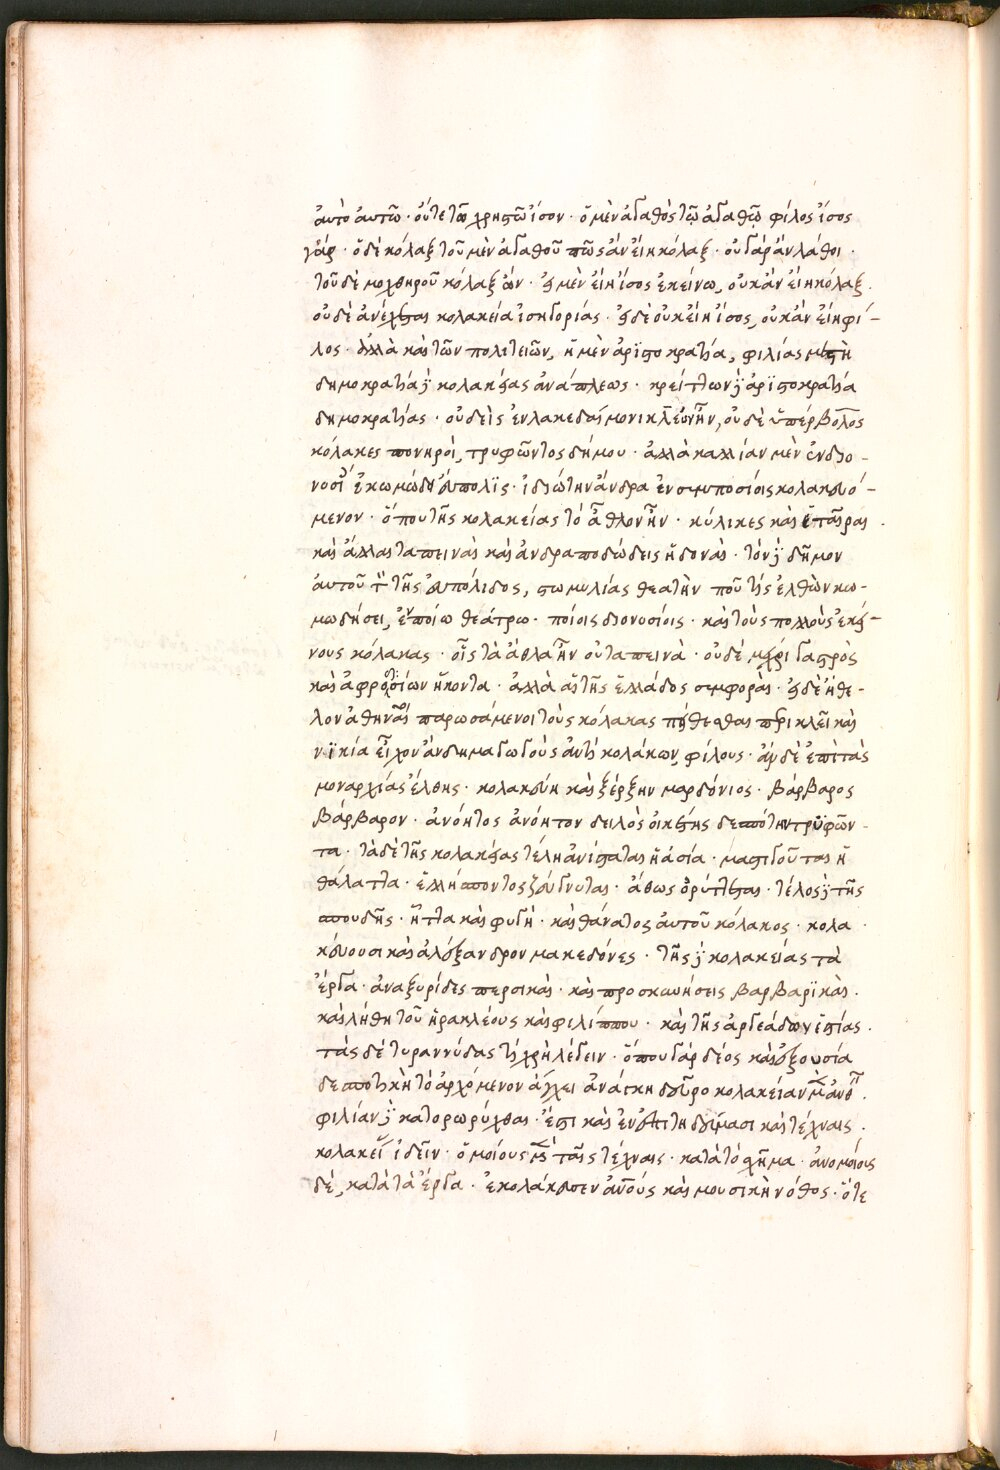 ἀυτὸ ἀυτῶ· οὔτε τῶ χρηστῶ ἴσον· ὁ μὲν ἀγαθὸς τῶ ἀγαθῶ φίλος ἴσος
γάρ· ὁ δὲ κόλαξ τοῦ μὲν ἀγαθοῦ πῶς ἂν εἴη κόλαξ· οὐ γὰρ ἂν λάθοι·
τοῦ δὲ μοχθηροῦ κόλαξ ὤν· εἰ μὲν εἴη ἴσος ἐκείνω, οὐκ ἂν εἴη κόλαξ·
οὐδὲ ἀνέχεται κολακεία ἰσηγορίας· εἰ δὲ οὐκ εἴη ἴσος, οὐκ ἂν εἴη φί-
λος· ἀλλὰ καὶ τῶν πολιτειῶν, ἡ μὲν ἀρϊστοκρατία, φιλίας μεστὴ
δημοκρατία δὲ κολακείας ἀνάπλεως· κρείττων δὲ ἀρϊστοκρατία
δημοκρατίας· οὐδεὶς ἐν λακεδαίμονι κλέων ἦν, οὐδὲ ὑπέρβολος
κόλακες πονηροὶ, τρυφῶντος δήμου· ἀλλὰ καλλίαν μὲν ἐν διο-
νύσου ἐκωμώδει εὔπολϊς· ἰδιώτην ἄνδρα ἐν συμποσίοις κολακευό-
μενον· ὅπου τῆς κολακείας τὸ ἆθλον ἦν· κύλικες καὶ ἑταῖραι·
καὶ ἄλλαι ταπειναὶ καὶ ἀνδραποδώδεις ἡδοναὶ· τὸν δὲ δῆμον
ἀυτοῦ τὸν τῆς εὐπόλιδος, στωμυλίας θεατὴν ποῦ τίς ἐλθὼν κω-
μωδήσει, ἐν ποίω θεάτρω· ποίοις διονυσίοις· καὶ τοὺς πολλοὺς ἐκεί-
νους κόλακας· οἷς τὰ ἆθλα ἦν οὐ ταπεινὰ· οὐδὲ μέχρι γαστρὸς
καὶ ἀφροδισίων ἥκοντα· ἀλλὰ αἱ τῆς ἑλλάδος συμφοραὶ· εἰ δὲ ἤθε-
λον ἀθηναῖοι παρωσάμενοι τοὺς κόλακας πείθεσθαι περικλεῖ καὶ
νϊκία εἶχον ἂν δημαγωγοὺς ἀντὶ κολάκων, φίλους· ἂν δὲ ἐπὶ τὰς
μοναρχίας ἔλθης· κολακεύει καὶ ξέρξην μαρδόνιος· βάρβαρος
βάρβαρον· ἀνόητος ἀνόητον δειλὸς οἰκέτης δεσπότην τρυφῶν-
τα· τὰ δὲ τῆς κολακείας τέλη ἀνίσταται ἡ ἀσία· μαστιγοῦται ἡ
θάλαττα· ἑλλήσποντος ζεύγνυται· ἄθως ὀρύττεται· τέλος δὲ τῆς
σπουδῆς· ἧττα καὶ φυγὴ· καὶ θάνατος ἀυτοῦ κόλακος· κολα
κεύουσι καὶ ἀλέξανδρον μακεδόνες· τῆς δὲ κολακείας τὰ
ἔργα· ἀναξυρίδες περσικαὶ· καὶ προσκυνήσεις βαρβαρϊκαὶ·
καὶ λήθη τοῦ ἡρακλέους καὶ φιλίππου· καὶ τῆς ἀργεάδων ἑστίας·
τὰς δὲ τυραννίδας τί χρὴ λέγειν· ὅπου γὰρ δέος καὶ ἐξουσία
δεσποτικὴ τὸ ἀρχόμενον ἄγχει ἀνάγκη δεῦρο κολακείαν μὲν ἀνθεῖν·
φιλίαν δὲ κατορωρύχθαι· ἔστι καὶ ἐν ἐπιτηδεύμασι καὶ τέχναις·
κολακείαν ἰδεῖν· ὁμοίους μὲν ταῖς τέχναις· κατὰ τὸ σχῆμα· ἀνομοίοις
δὲ, κατὰ τὰ ἔργα· ἐκολάκευσεν ἀν̅ο̅υς καὶ μουσικὴ νόθος· ὅτε